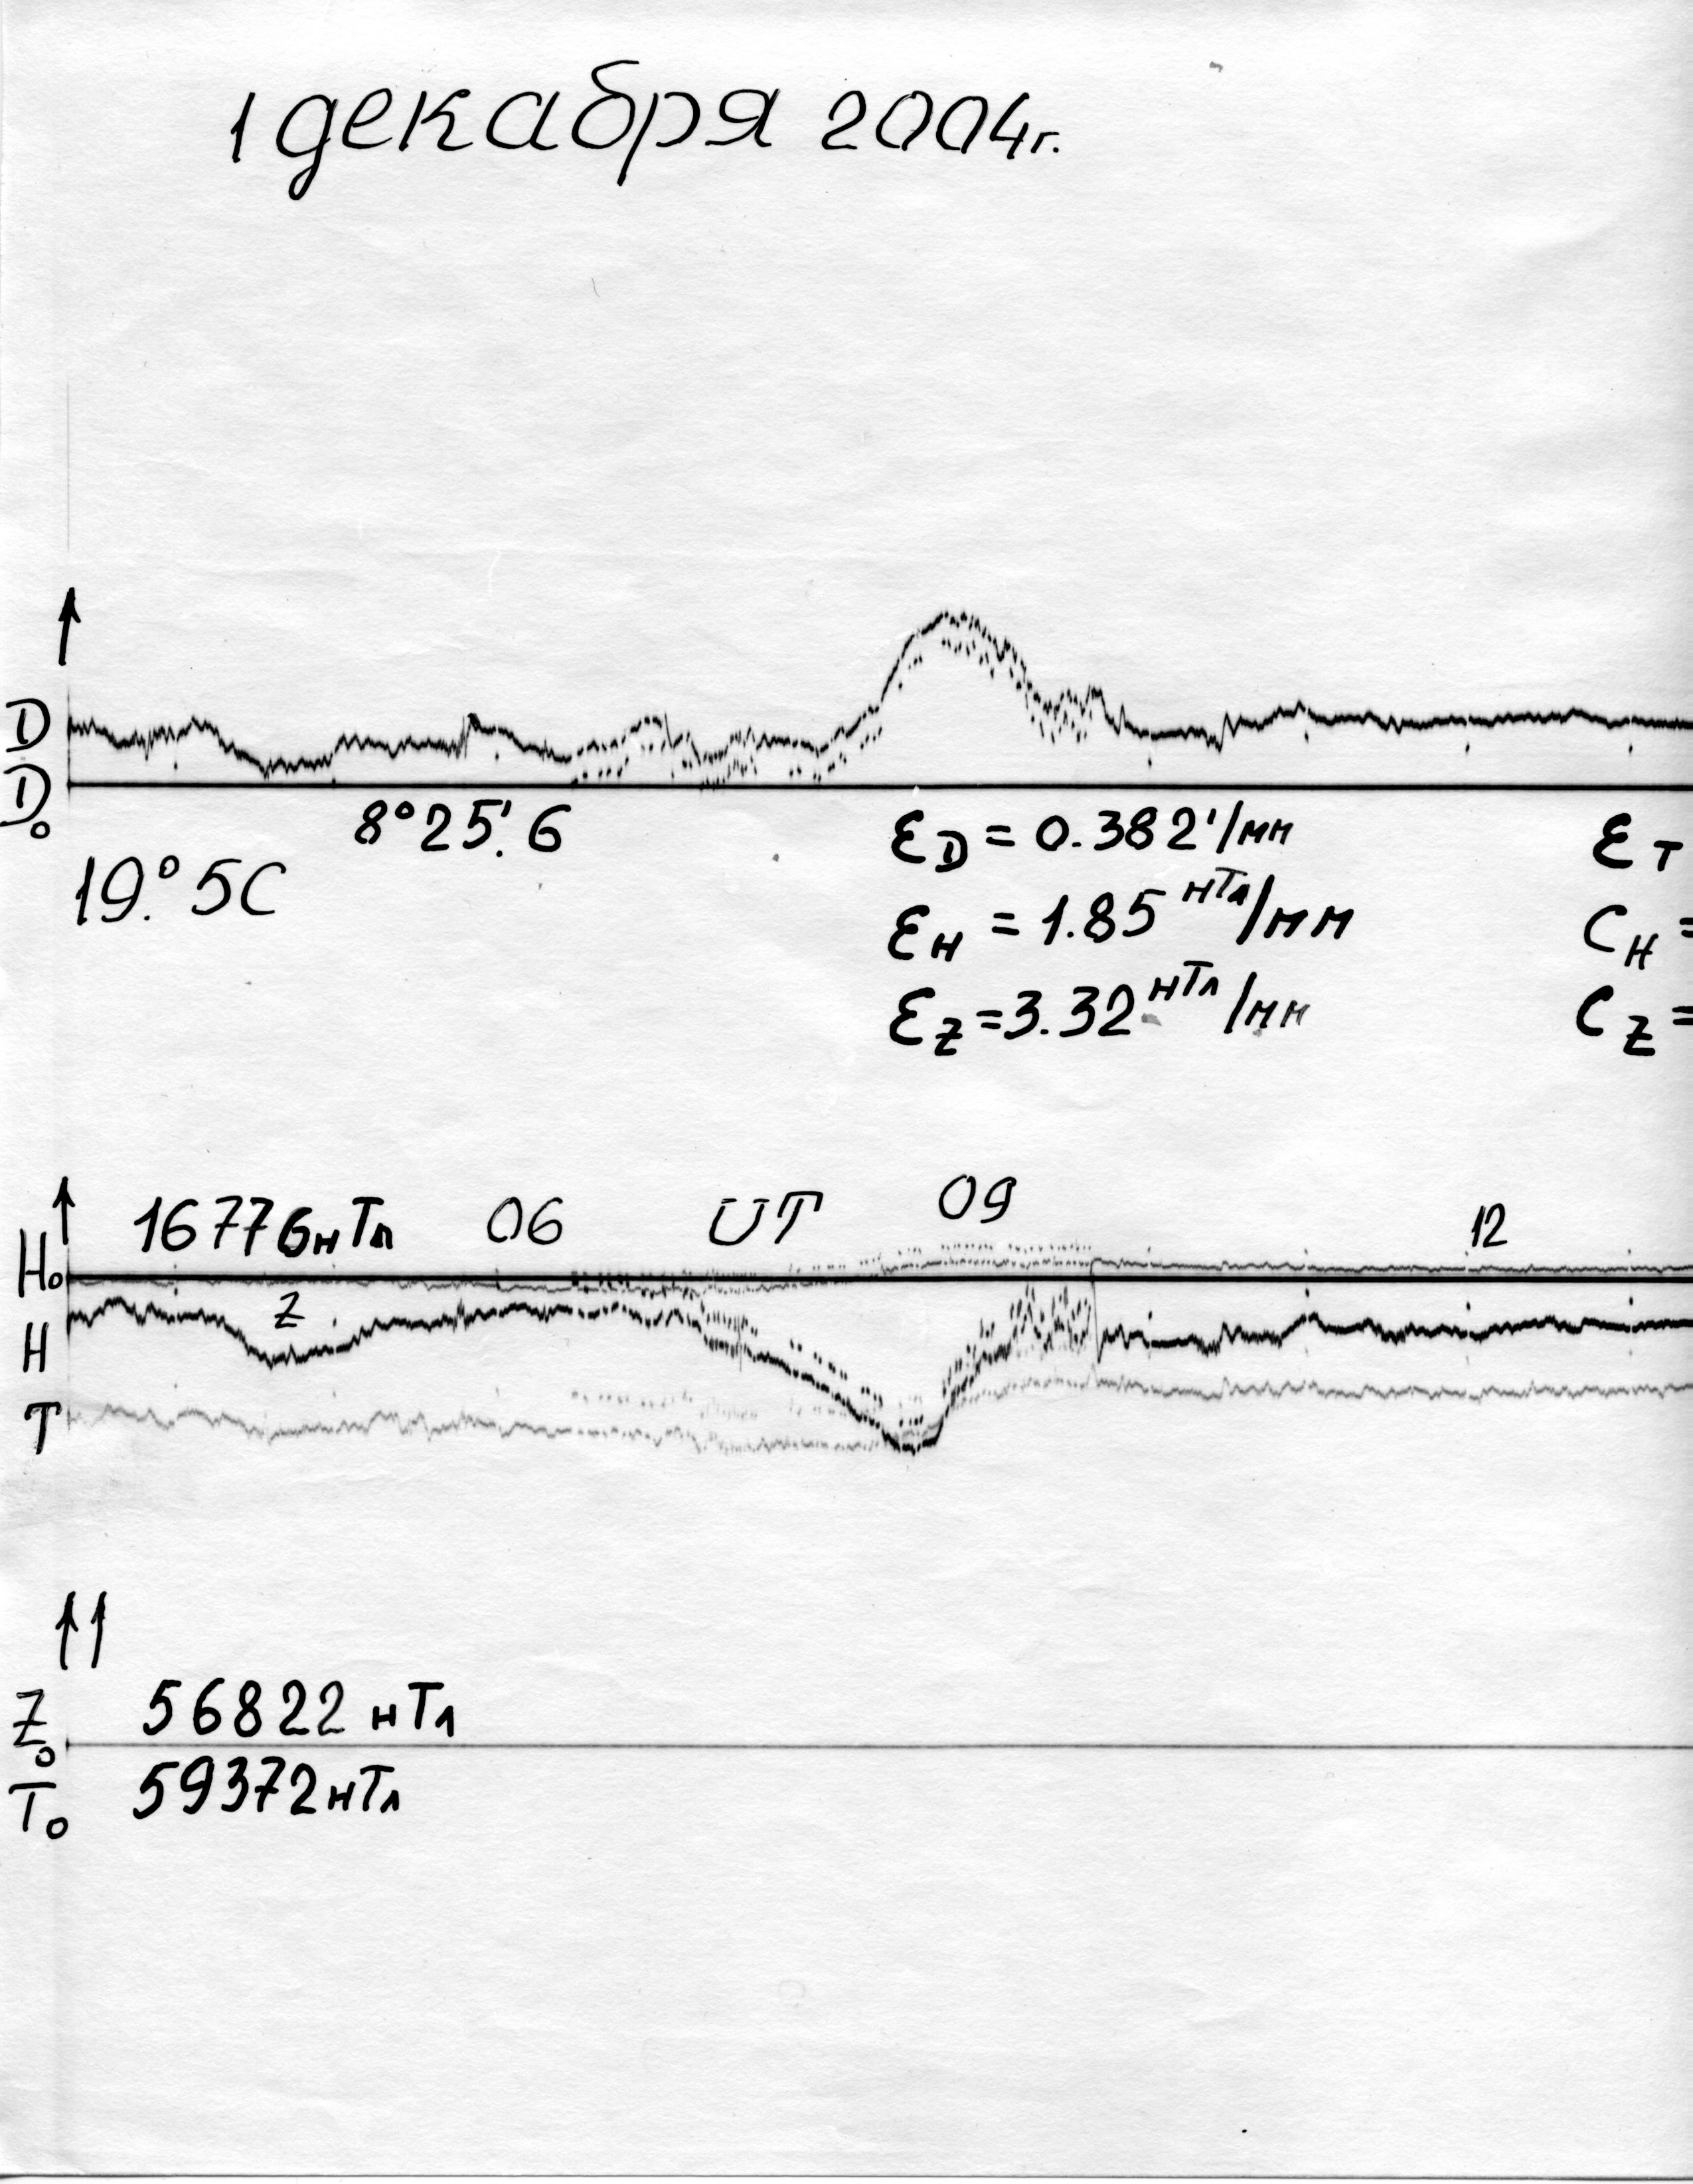 1 декабря 2004г.
D
D₀
8°25'.6
19.°5C
ε_D = 0.382'/мм
ε_H = 1.85 нТл/мм
ε_Z = 3.32 нТл/мм
ε_T
C_H =
C_Z =
16776нТл 06 UT 09 12
H₀
Z
H
T
Z₀ 56822 нТл
T₀ 59372нТл